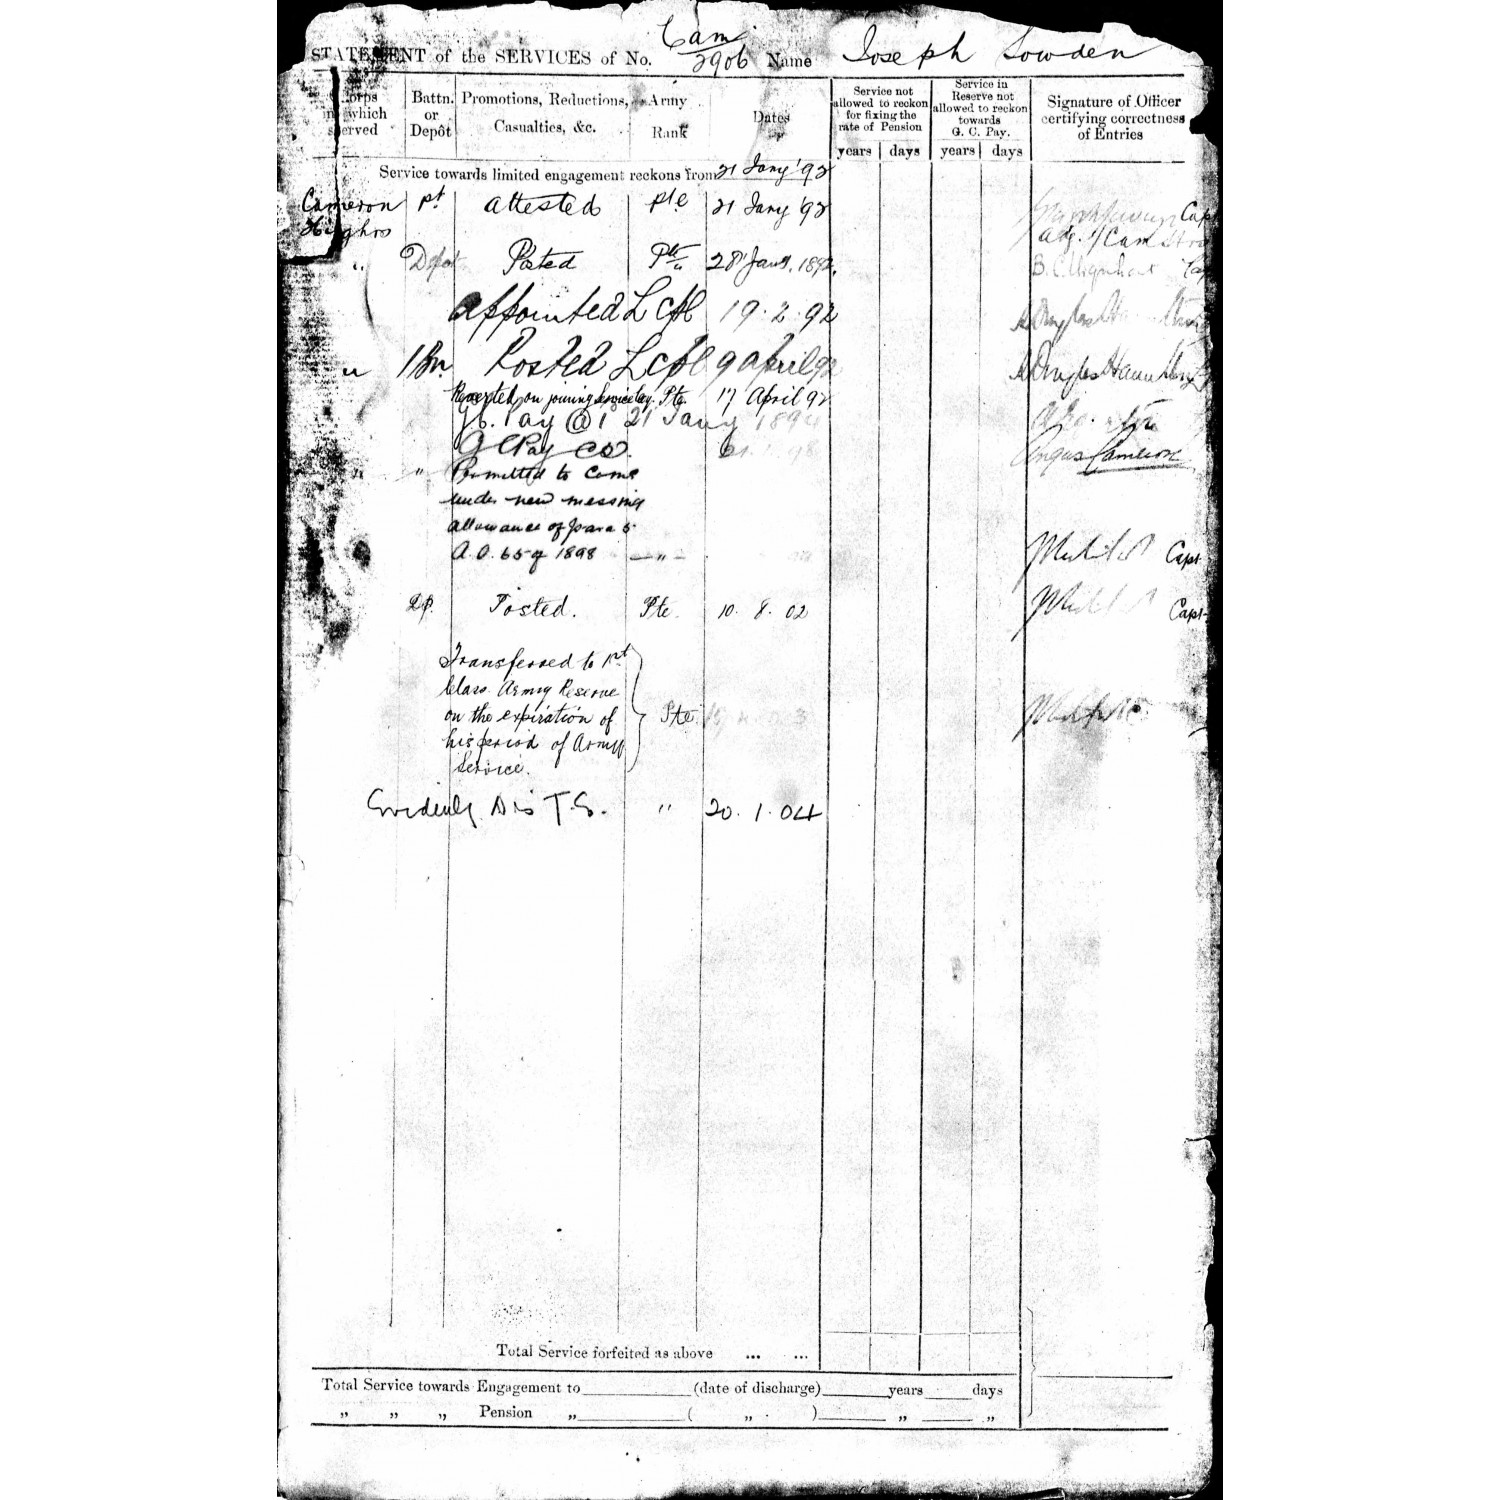 Cam
STATEMENT of the SERVICES of No. 2906 Name Joseph Lowden
Corps in which served
Battn. or Depôt
Promotions, Reductions, Casualties, &c.
Army Rank
Dates
Service not allowed to reckon for fixing the rate of Pension
Service in Reserve not allowed to reckon towards G. C. Pay.
Signature of Officer certifying correctness of Entries
years days years days
Service towards limited engagement reckons from 21 Jany '92
Cameron Pt attested Pte 21 Jany '92 Capt
Highrs
" Depot Posted Pte 28 Jany. 1892. B. C. Urquhart Cap
appointed L Cpl 19. 2. 92
" 1 Bn. Posted L Cpl 9 April 92
Reverted on joining Service Coy. Pte. 17 April 92
G.C. Pay @ 1 21 Jany 1894
G C Pay 98 Angus Cameron
" " Permitted to come
under new messing
allowance of para 5
A.O. 65 of 1898 — " — Capt
Dp. Posted. Pte. 10. 8. 02 Capt
Transferred to 1st
Class Army Reserve
on the expiration of Pte
his period of Army
Service.
Evidently Dis T.E. " 20. 1. 04
Total Service forfeited as above ... ...
Total Service towards Engagement to (date of discharge) years days
" " " Pension " ( " ) " "